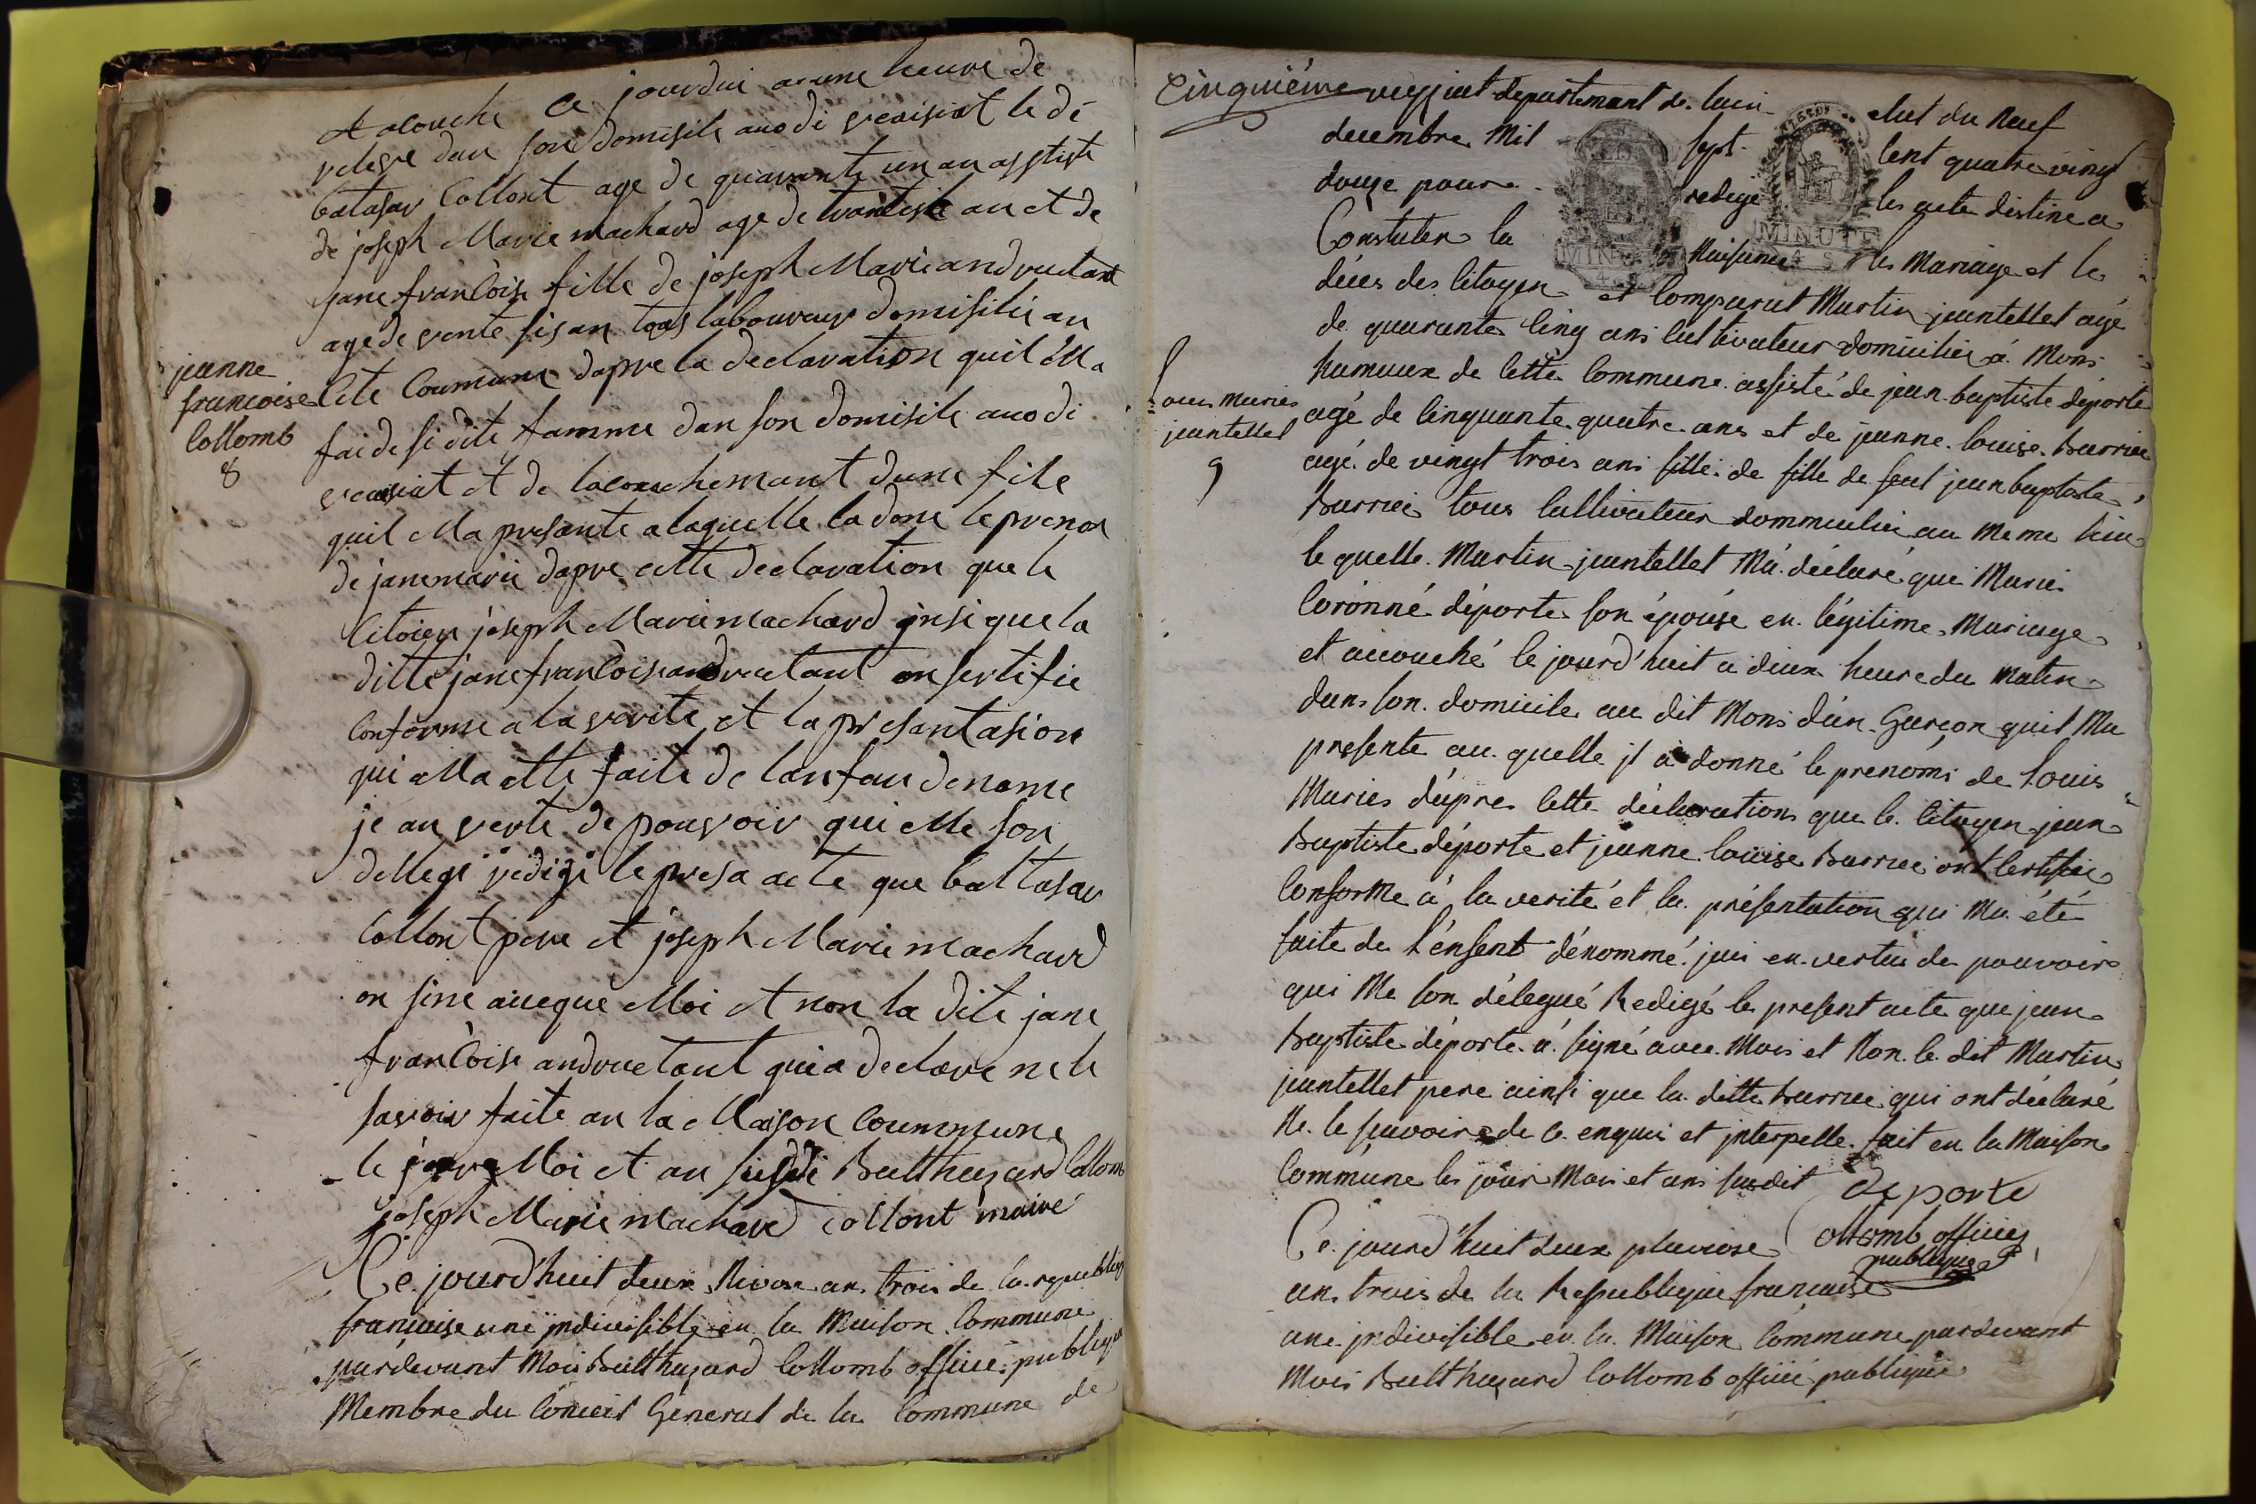 et acouche ce jourdui a une heure de
relevé dan son domisile audi veaisiat le dé
batasar Collont age de quarante un an asistéte
de joseph Marie machard age de trantesit an et de
jane francoise fille de joseph Marie andruetant
age de vente sis an tous laboureur domisilie an
cete Coumune dapre la declaration quil élla
jeanne
francoise
Collomb
8
fai de si dite famme dan son domisile audi
veaisiat et de lacouchemant dune file
quil ella presante alaquelle la done le prenon
de jane marie dapre cette declaration que le
Citoien joseph Marie machard insi que la
ditte jane francoise andruetant on sertifie
Conforme a la verite et la presantasion
qui ella ette faite de lanfan denome
je an verte de pouvoir qui elle son
dellege redige le presa acte que baltasar
Collont pere et joseph Marie machard
on sine aveque Moi et non la dite jane
francoise andruetant qui a declare ne le
savoir faite an la Maison Coummune
le jour Moi et an susdi Balthazard Collomb
joseph Marie machard collont maire
Ce jourd'huit deux Nivose an trois de la republiq
francaise une jndivisible en la Maison Commune
pardevant Moi Balthazard Collomb officié publiq
Membre du Conseil Géneral de la Commune de
Cinquiéme
veyziat departement de lain elut du Neuf
decembre Mil sept Cent quatre vingt
douze pour redigé les acte destine a
Constater la Naisance les Mariage et les
déces des Citoyen et Comparut Martin jeantellet agé
de quarante Cinq ans Cultivateur domicilié á Mons
hameaux de Cette Commune assisté de jean baptiste déporte
Louis Maries
jeantellet
9
agé de Cinquante quatre ans et de jeanne Louise barrier
agé de vingt trois ans fille de fille de feut jean baptiste
barrier tous Cultivateur dommicilie au Meme lieu
le quelle Martin jeantellet Má déclaré que Marie
Coronné déporte son épouse en légitime Mariage
et accouché le jourd'huit a deux heure du Matin
dans son domicile au dit Mons d'un Garçon quil Ma
presente au quelle jl a donné le prenoms de Louis
Maries dápres Cette déclaration que le Citoyen jean
Baptiste déporte et jeanne Louise barrier ont Certifié
Conforme á la verité et la présentation qui Ma été
faite de l'énfent dénommé jais en vertus de pouvoirs
qui Me son délegué Redigé le present acte que jean
Baptiste déporte á signé avec Mois et Non le dit Martin
jeantellet pere ainsi que la ditte barrier qui ont déclaré
Ne le scavoir de ce enquis et jnterpelle fait en la Maison
Commune les jour Mois et ans susdit deporte
Collomb officier
publique
Ce jourd'huit deux pluviose
an trois de la Republique francaise
une jndivisible en la Maison Commune pardevant
Mois Balthazard Collomb officié publique
MINUTE
4 S
MINUTE
4 S